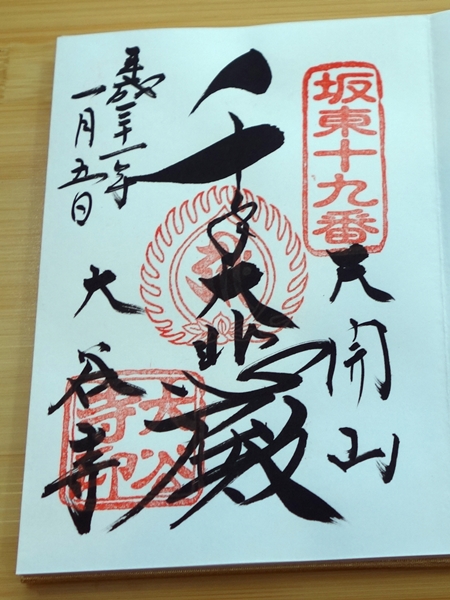 坂東十九番
天開山
千手大悲殿
平成三十一年
一月五日
大谷寺
大谷寺印